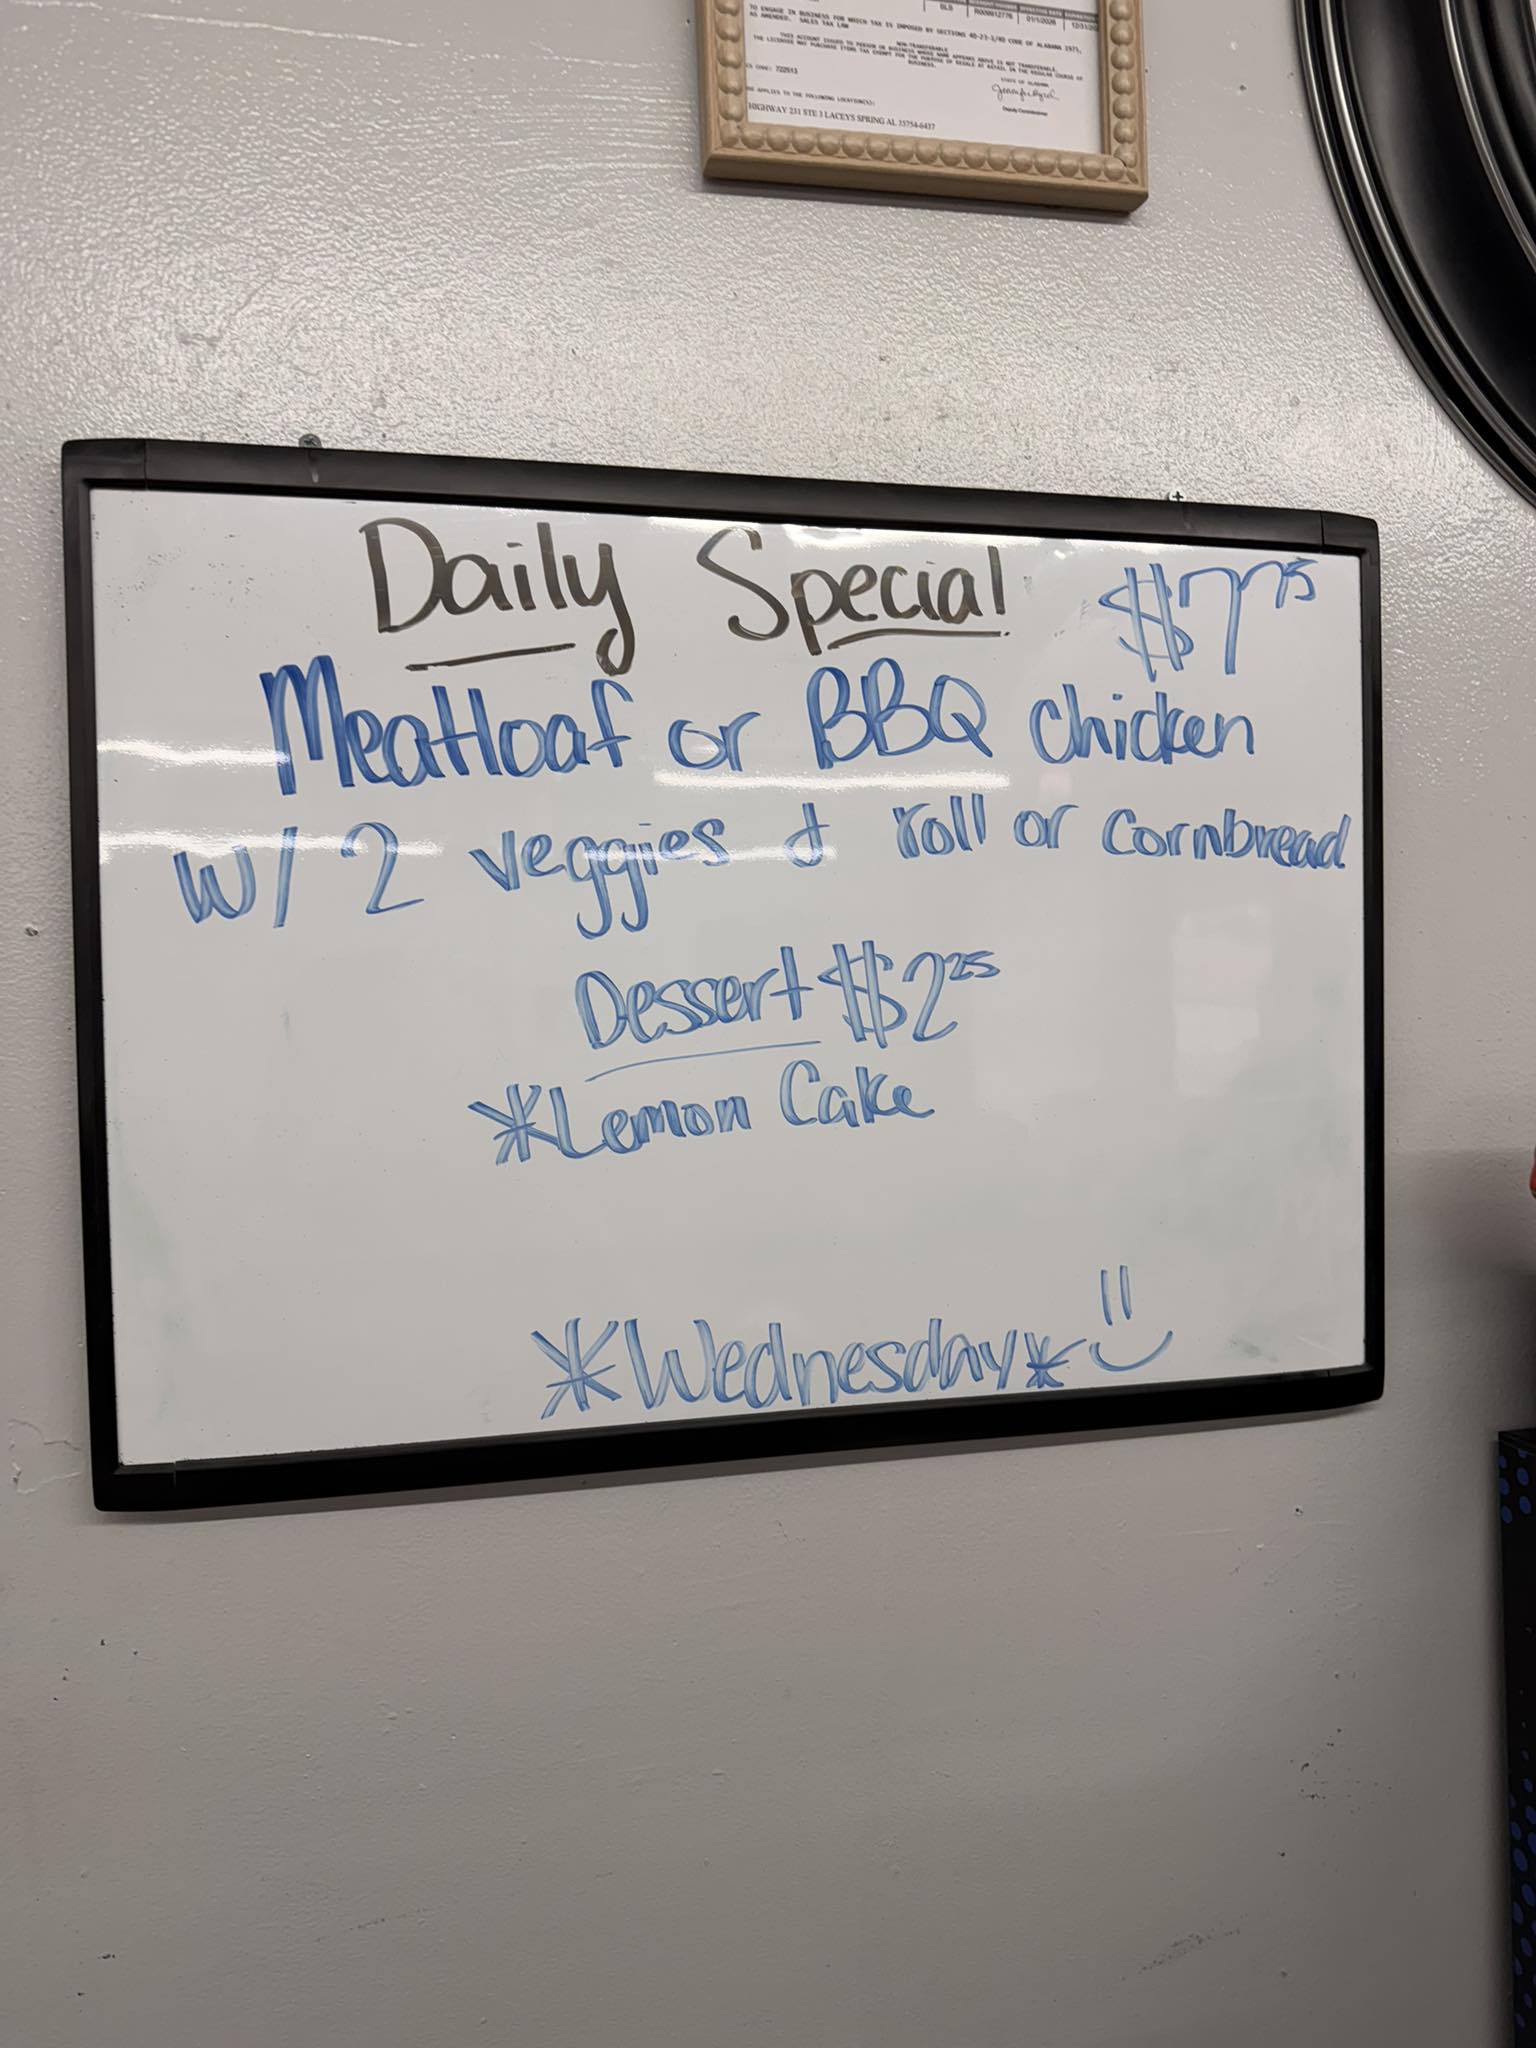 SLS R009912776 01/1/2026
TO ENGAGE IN BUSINESS FOR WHICH TAX IS IMPOSED BY SECTIONS 40-23-1/40 CODE OF ALABAMA 1975,
AS AMENDED. SALES TAX LAW
NON-TRANSFERABLE
THIS ACCOUNT ISSUED TO PERSON OR BUSINESS WHOSE NAME APPEARS ABOVE IS NOT TRANSFERABLE.
THE LICENSEE MAY PURCHASE ITEMS TAX EXEMPT FOR THE PURPOSE OF RESALE AT RETAIL IN THE REGULAR COURSE OF
BUSINESS.
CODE: 722513
STATE OF ALABAMA
APPLIES TO THE FOLLOWING LOCATION(S):
Deputy Commissioner
HIGHWAY 231 STE 3 LACEYS SPRING AL 35754-6437
Daily Special $7 75
Meatloaf or BBQ chicken
w/ 2 veggies & roll or cornbread
Dessert $2 25
*Lemon Cake
*Wednesday*